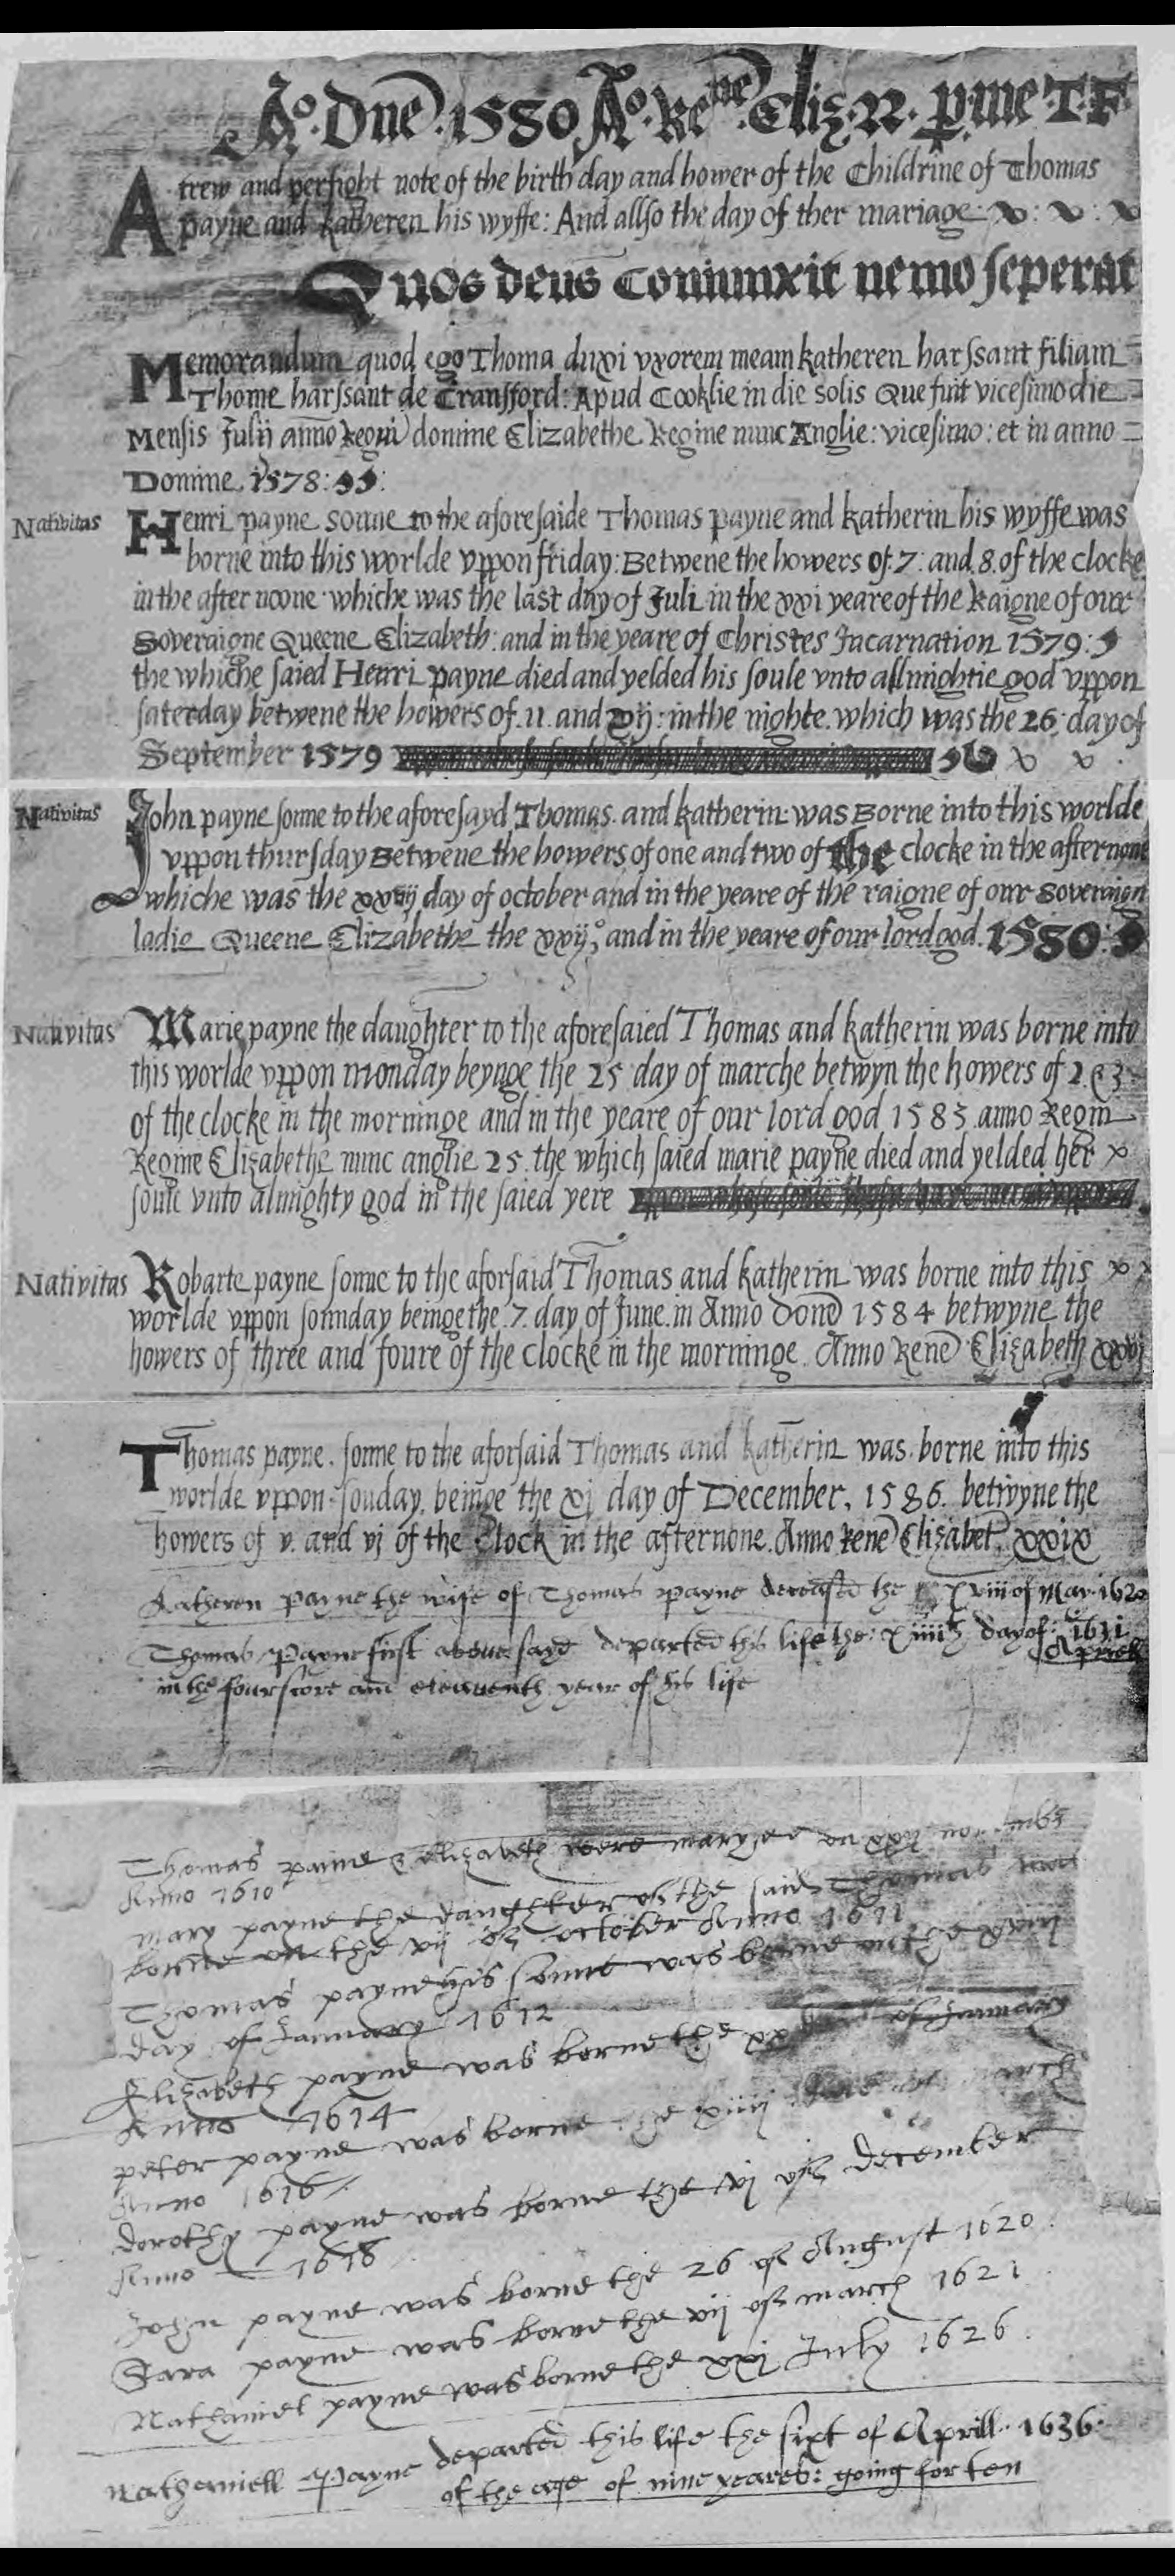 Ao. Dne. 1580 Ao. Rene. Eliz. 22. p me T.F.
A trew and perfight note of the birth day and hower of the Childrine of Thomas
payne and katheren his wyffe: And allso the day of ther mariage:
Quos deus Coniunxit nemo seperat
Memorandum quod ego Thoma duxi vxorem meam katheren harssant filiam
Thome harssant de Cransford: Apud Cooklie in die solis Que fuit vicesimo die
Mensis Julij anno Regni domine Elizabethe Regine nunc Anglie: vicesimo: et in anno
Domine 1578:
Nativitas Henri payne sonne to the aforesaide Thomas payne and katherin his wyffe was
borne into this worlde vppon friday: Betwene the howers of .7. and .8. of the clocke
in the after noone whiche was the last day of Juli in the xxi yeare of the Raigne of our
Soveraigne Queene Elizabeth: and in the yeare of Christes Incarnation 1579:
the whiche saied Henri payne died and yelded his soule vnto allmightie god vppon
saterday betwene the howers of .11. and xij: in the nighte which was the 26 day of
September 1579
Nativitas John payne sonne to the aforesayd Thomas and katherin was Borne into this worlde
vppon thursday Betwene the howers of one and two of the clocke in the afternone
whiche was the day of october and in the yeare of the raigne of our Soveraign
ladie Queene Elizabethe the xxijo and in the yeare of our lord god 1580:
Nativitas Marie payne the daughter to the aforesaied Thomas and katherin was borne into
this worlde vppon monday beynge the 25 day of marche betwyn the howers of 2 & 3
of the clocke in the morninge and in the yeare of our lord god 1583 anno Regni
Regine Elizabethe nunc anglie 25. the which saied marie payne died and yelded her x
soule vnto almighty god in the saied yere
Nativitas Robarte payne sonne to the aforsaid Thomas and katherin was borne into this x x
worlde vppon sonnday beinge the .7. day of June in Anno Done 1584 betwyne the
howers of three and foure of the clocke in the morninge. Anno Rene Elizabeth xxvj
Thomas payne. sonne to the aforsaid Thomas and katherin was borne into this
worlde vppon sonday. beinge the xj day of December, 1586. betwyne the
howers of v. and vj of the Clock in the afternone. Anno Rene Elizabet. xxix
Katheren Payne the wife of Thomas Payne deceased the Xviii of Mar. 1620
Thomas Payne first above sayd departed this life the: Xiiiith day of: Aprill 1631
in the fourscore and eleaventh year of his life
Thomas paine & Elizabeth were maryed on xxj
Anno 1610
Mary payne the daughter of the said Thomas was
borne on the vij of october Anno 1611
Thomas payne his sonne was borne on the
day of January 1612
Elizabeth payne was borne the xx of January
Anno 1614
peter payne was borne the xiiij march
Anno 1616
dorothy payne was borne the xj of december
Anno 1618
John payne was borne the 26 of August 1620.
Sara payne was borne the vij of march 1621
Nathaniel payne was borne the xxj July 1626.
Nathaniell Payne departed this life the sixt of Aprill. 1636.
of the age of nine yeares: going for ten